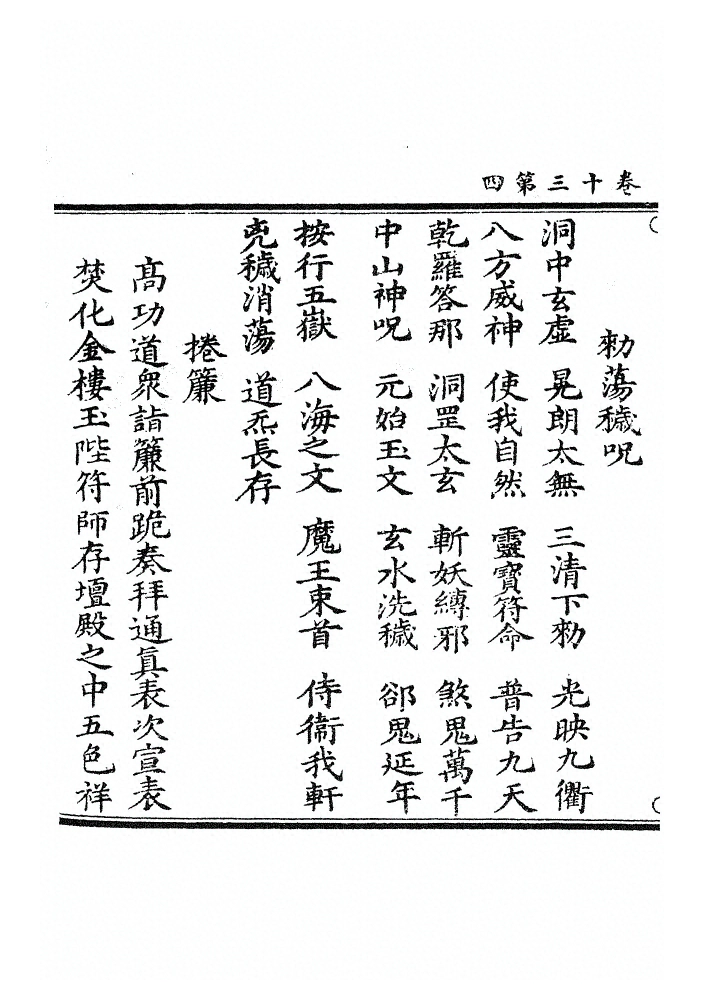 卷十三第四
勑蕩穢咒
洞中玄虛 晃朗太無 三清下勑 光映九衢
八方威神 使我自然 靈寶符命 普告九天
乾羅答那 洞罡太玄 斬妖縛邪 煞鬼萬千
中山神咒 元始玉文 玄水洗穢 郤鬼延年
按行五嶽 八海之文 魔王束首 侍衞我軒
兇穢消蕩 道炁長存
捲簾
高功道衆詣簾前跪奏拜通眞表次宣表
焚化金樓玉陛符師存壇殿之中五色祥